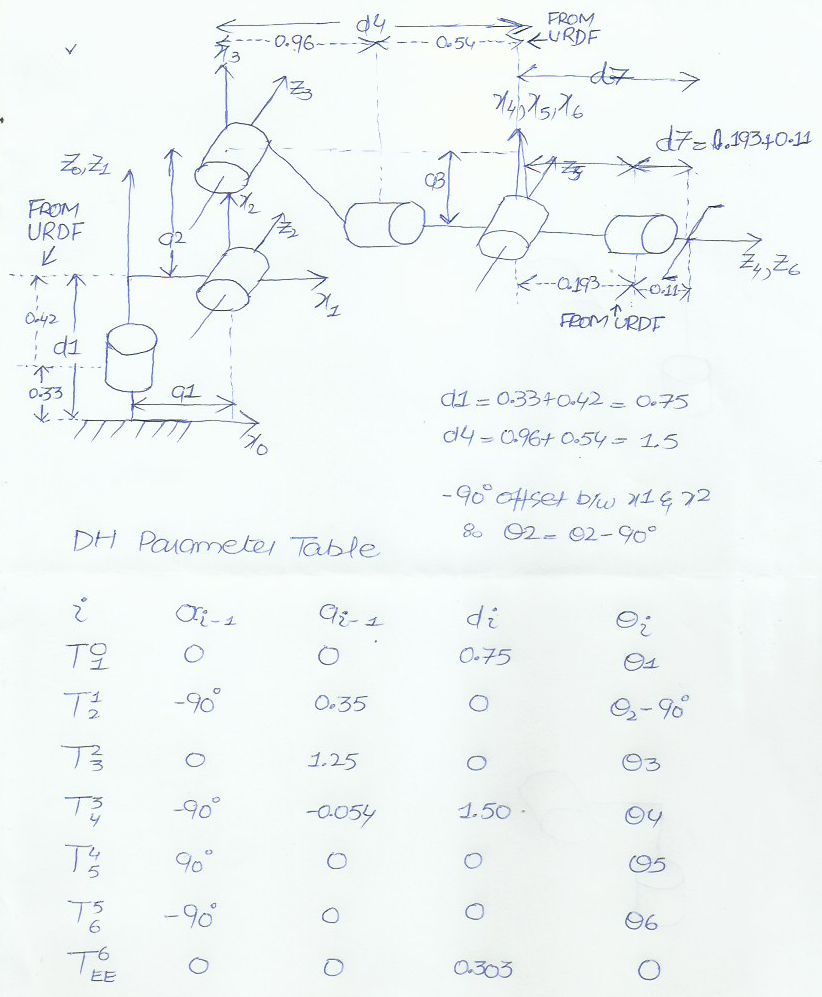 d4
FROM
URDF
0.96
0.54
x3
z3
d7
x4, x5, x6
d7=0.193+0.11
z0, z1
a2
x2
z2
a3
z5
FROM
URDF
x1
z4, z6
0.193
0.11
FROM URDF
0.42
d1
0.33
a1
x0
d1 = 0.33+0.42 = 0.75
d4 = 0.96+0.54 = 1.5
-90° offset b/w x1 & x2
so θ2 = θ2-90°
DH Parameter Table
i αi-1 ai-1 di θi
T0 1 0 0 0.75 θ1
T1 2 -90° 0.35 0 θ2-90°
T2 3 0 1.25 0 θ3
T3 4 -90° -0.054 1.50 θ4
T4 5 90° 0 0 θ5
T5 6 -90° 0 0 θ6
T6 EE 0 0 0.303 0